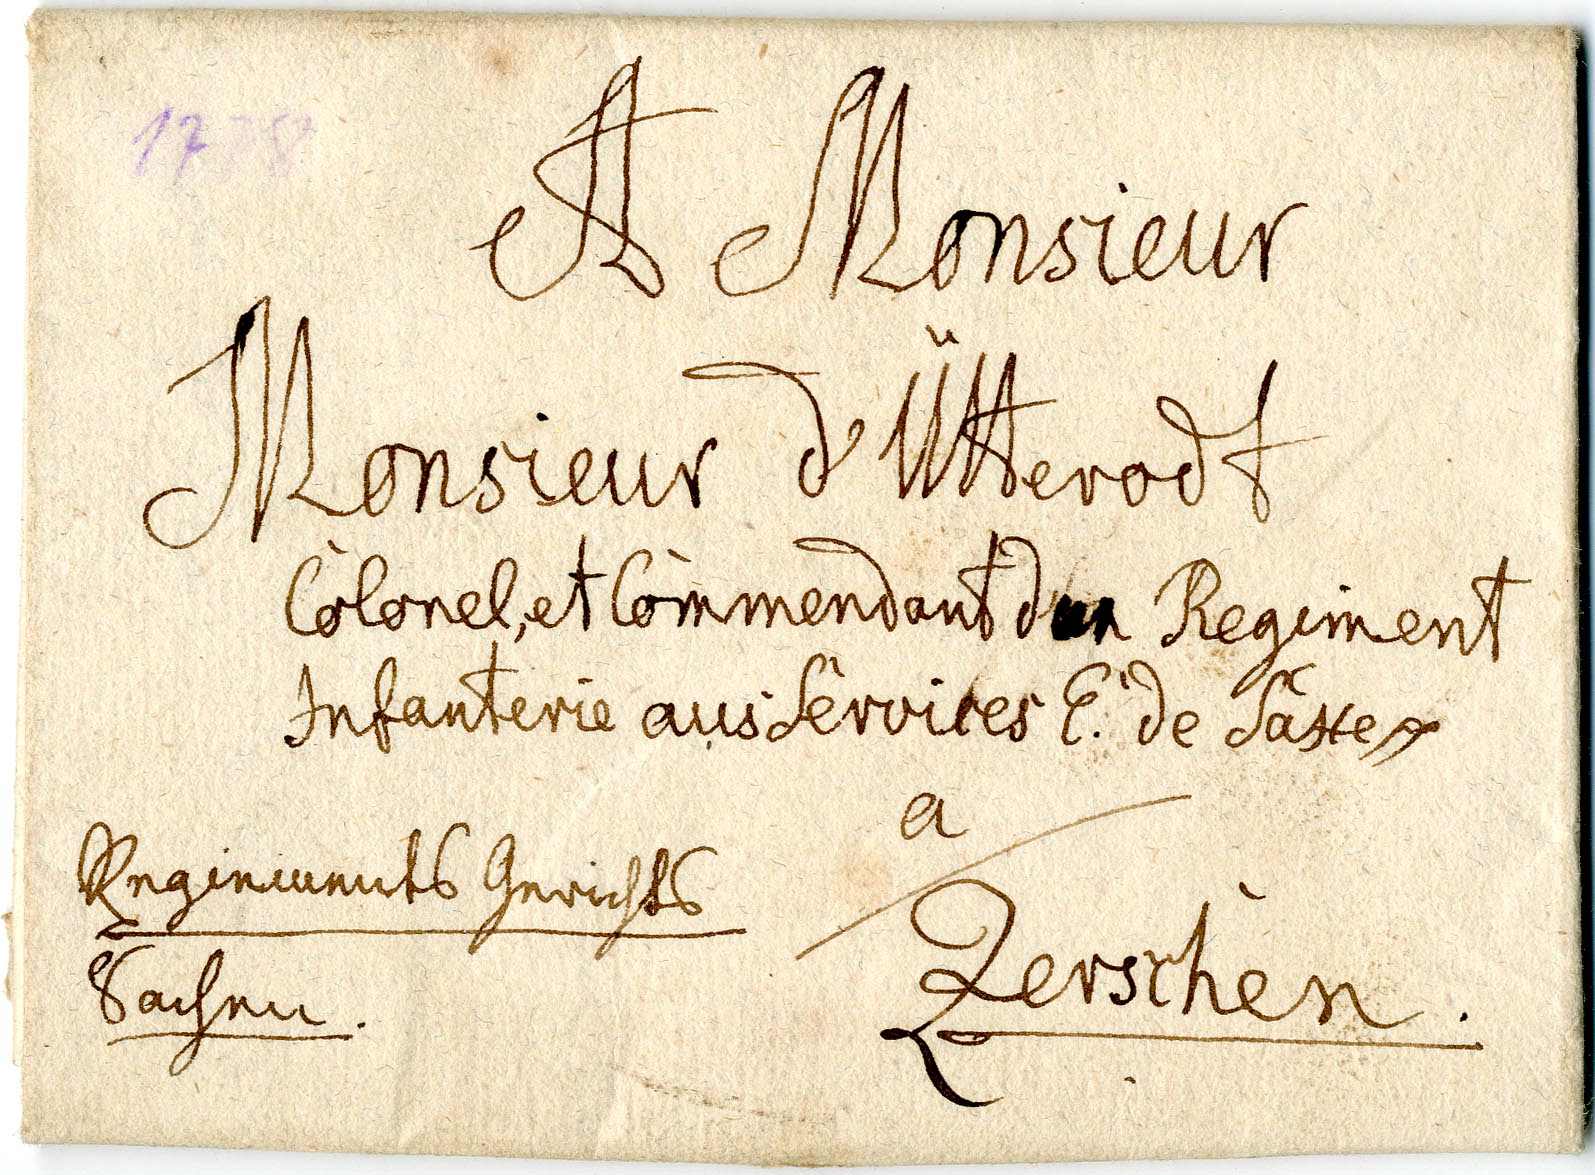 1738
A Monsieur
Monsieur d'Ütterodt
Colonel, et Commendant d'un Regiment
Infanterie aus Services E. de Saxe
a
Zerschen.
Regiements Gerichts
Sachen.